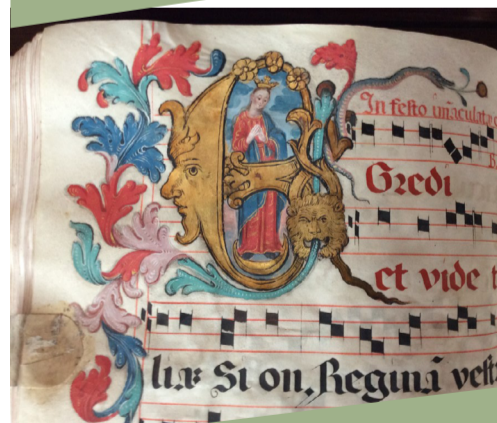 In festo im̃aculatæ
EGredi
et vide
liæ Si on, Reginã vest